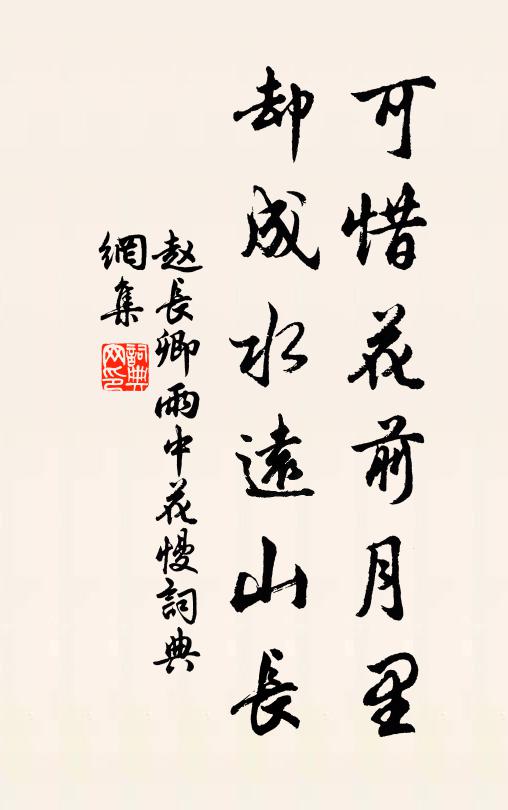 可惜花前月里
却成水遠山長
赵長卿雨中花慢詞典
網集
詞典
网印